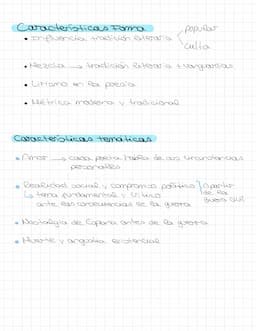 Características Forma
• Influencia tradición literaria { popular
culta
• Mezcla → tradición literaria + vanguardias
• Lirismo en la poesía
• Métrica moderna y tradicional
Características temáticas
• Amor → cada poeta habla de sus circunstancias
personales
• Realidad social y compromiso político } a partir
↳ tema fundamental y crítico de la
ante las consecuencias de la guerra guerra civil
• Nostalgia de España antes de la guerra
• Muerte y angustia existencial